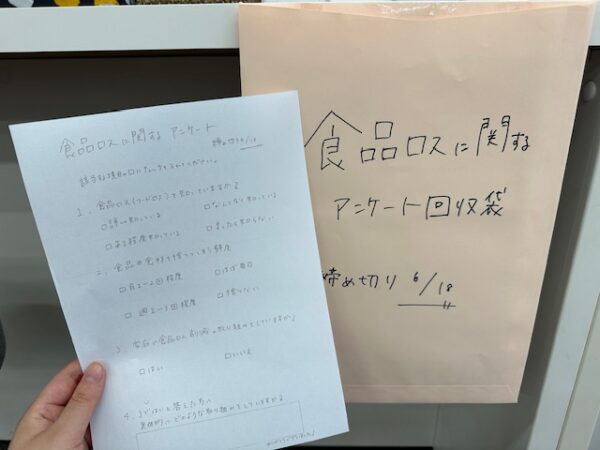 食品ロスに関する アンケート
締め切り 6/18
該当する項目の□にチェックを入れてください。
1. 食品ロス(フードロス)を知っていますか?
□詳しく知っている □なんとなく知っている
□ある程度知っている □まったく知らない
2. 食品や食材を捨ててしまう頻度
□月1〜2回程度 □ほぼ毎日
□週1〜2回程度 □捨てない
3. 食品ロス削減の取り組みをしていますか?
□はい □いいえ
4. 3ではいと答えた方へ
具体的にどのような取り組みをしていますか
食品ロスに関する
アンケート回収袋
締め切り 6/18